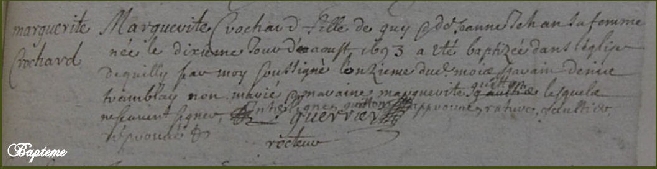 marguerite
Crochard
Marguerite Crochard fille de guy & de Jeanne Jehan sa femme
née le dixieme Jour d'aoust 1693 a eté baptizée dans l'église
de quilly par moy soussigné lonzieme dud. mois parain denis
tremblay non marié maraine marguerite lesquels
ne scavent signer guerrier approuve ratures
approuvé &
recteur
Bapteme